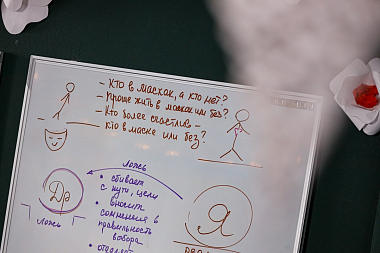 - Кто в масках, а кто нет?
- Проще жить в масках или без?
- Кто более счастлив -
кто в маске или без?
ложь
• сбивает
с пути, цели
• вносит
сомнения в
правильность
выбора
• отдаляет
Др
Ложь
Я